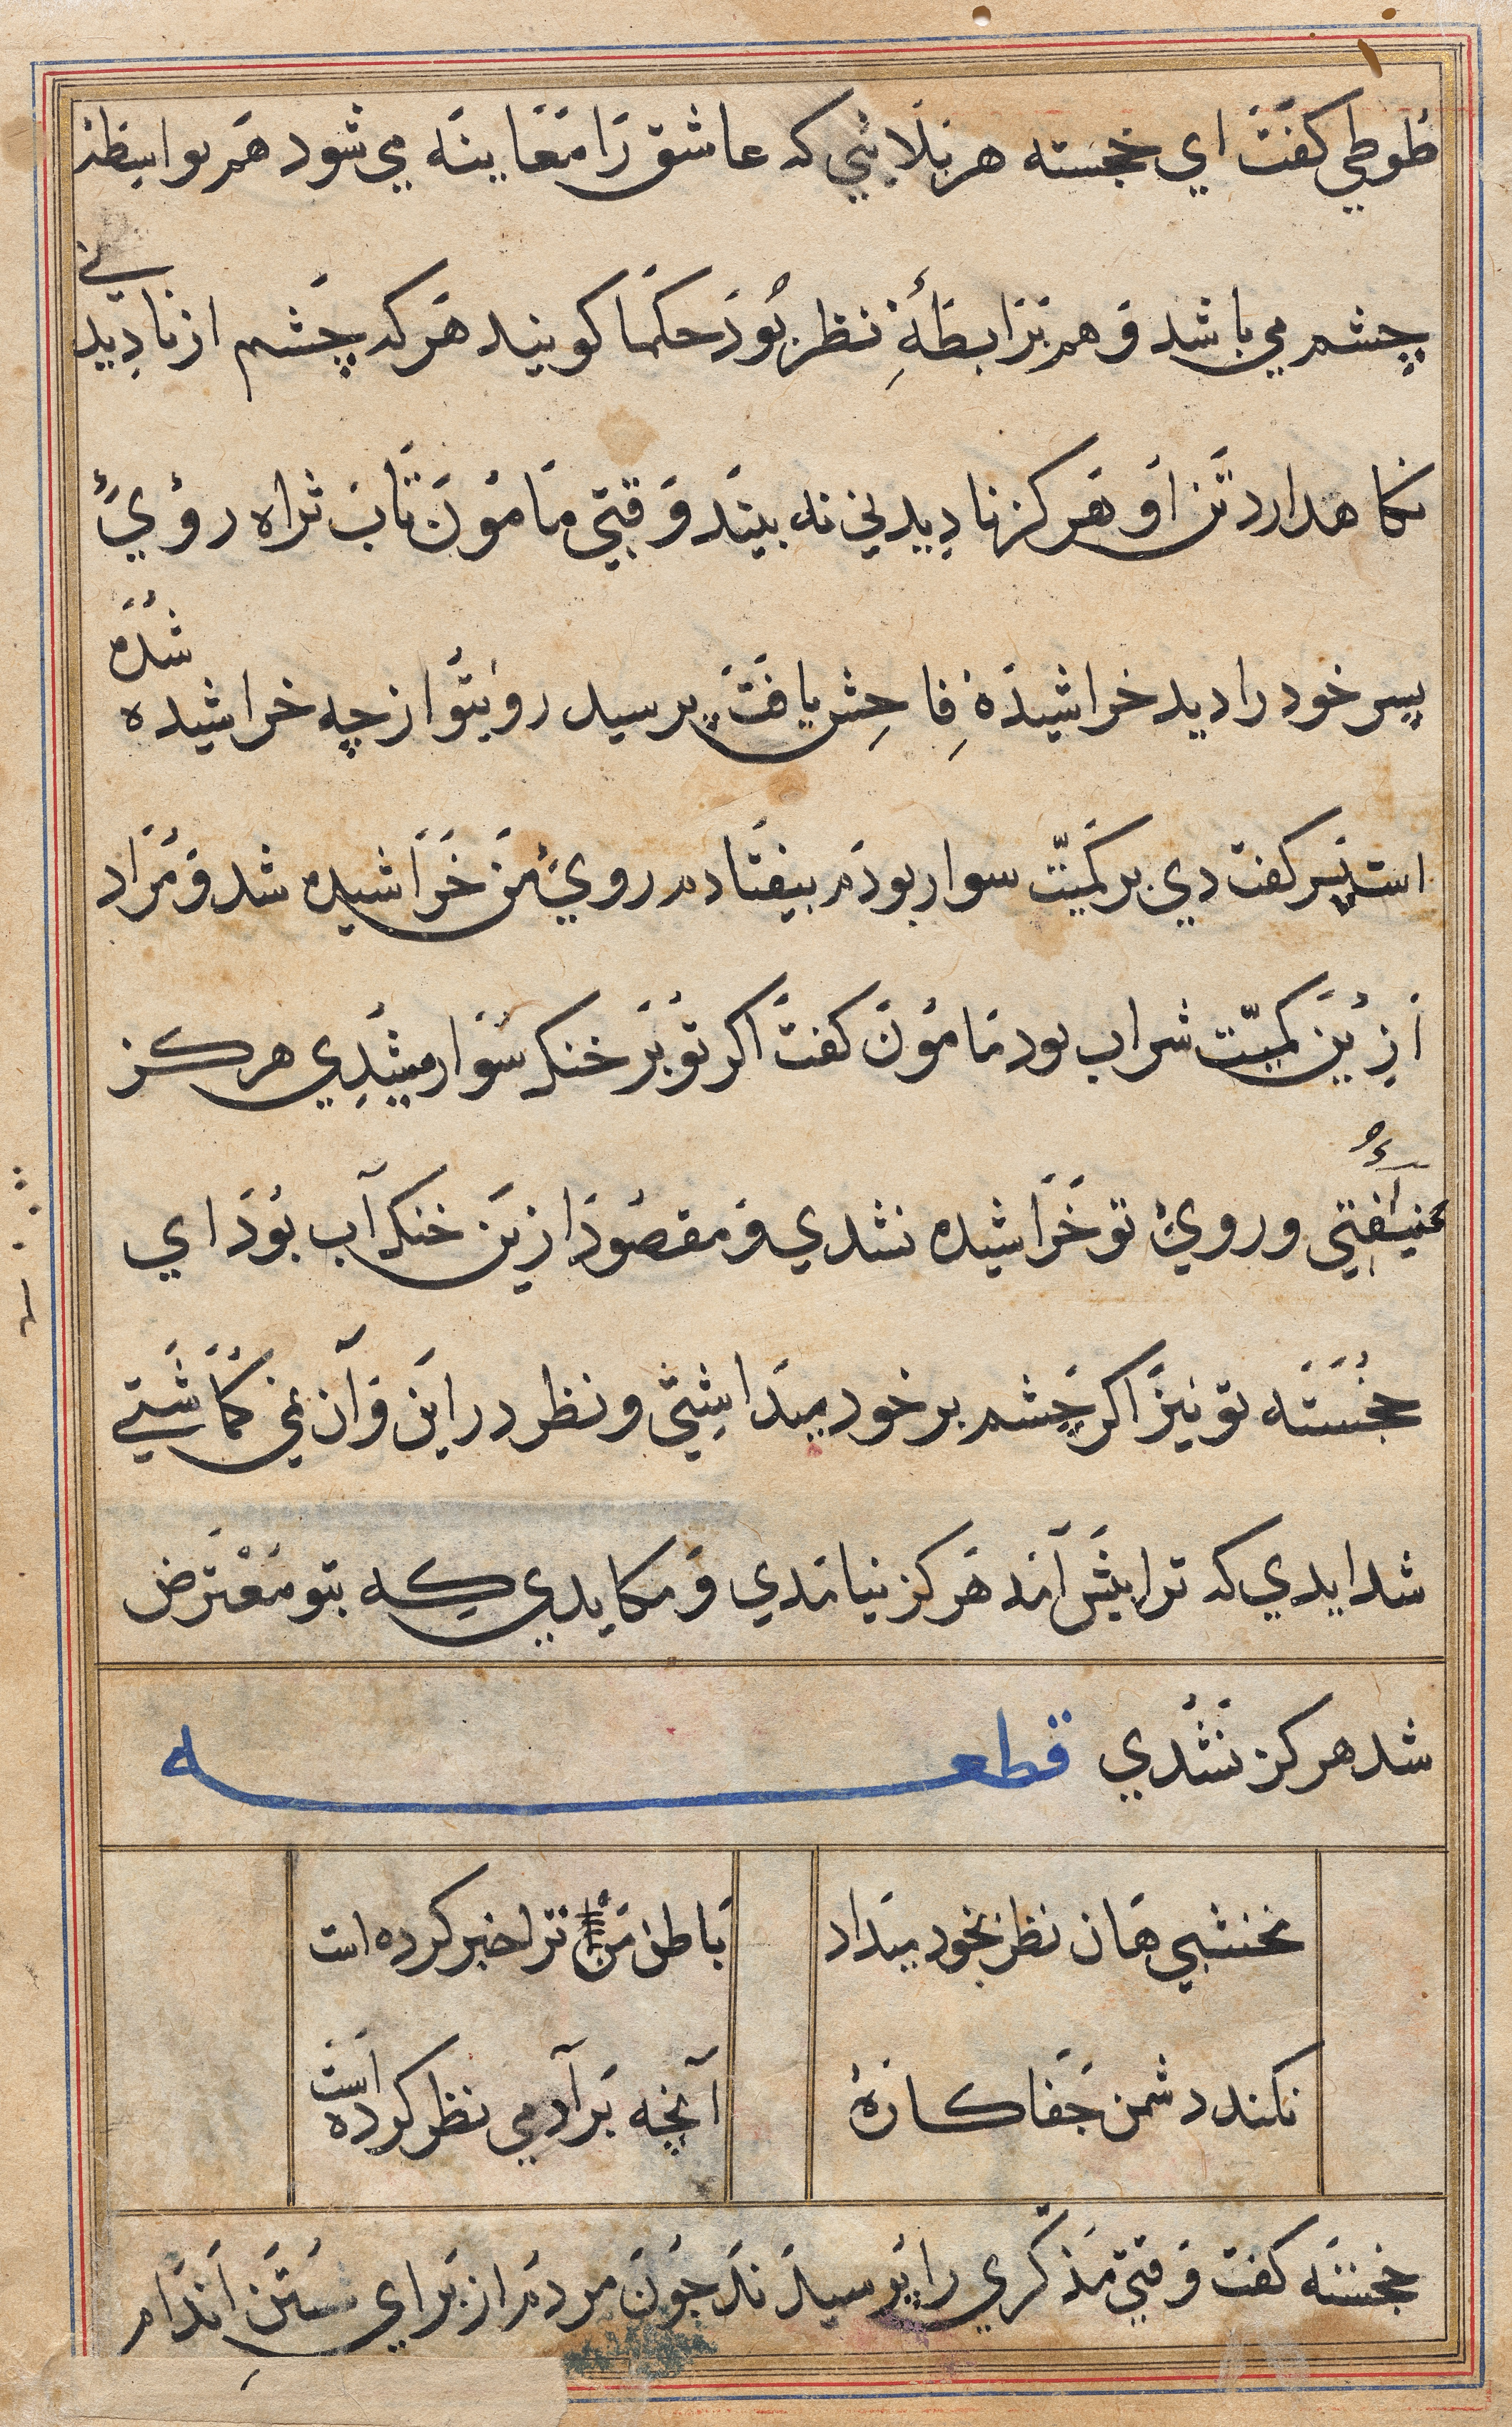 طوطي كفت اي خجسته هر بلايي كه عاشق را معاينه مي شود هم بواسطه
چشم مي باشد و هم برابطهٔ نظر بود حكما كويند هر كه چشم از ناديدني
نكاهدارد تن او هركز ناديدني نه بيند وقتي مامون تاب ثراه روي
پسر خود را ديد خراشيدهٔ فاحش يافت پرسيد روي تو از چه خراشيده شده
است پسر كفت دي بر كميت سوار بودم بيفتادم روي من خراشيده شد و مراد
ازين كميت شراب بود مامون كفت اكر تو بر خنك سوار ميشدي هركز
نيفتي و روي تو خراشيده نشدي و مقصود ازين خنك آب بود اي
خجسته تو نيز اكر چشم بر خود ميداشتي و نظر در اين و آن نمي كماشتي
شدايدي كه ترا پيش آمد هركز نيامدي و مكايدي كه بتو معترض
شد هركز نشدي قطعه
نخشبي هان نظر بخود ميدار
باطن من ترا خبر كرده است
نكند دشمن جفاكاره
آنچه بر آدمي نظر كرده است
خجسته كفت وقتي مذكري را پرسيدند چون مردم از براي شستن اندام